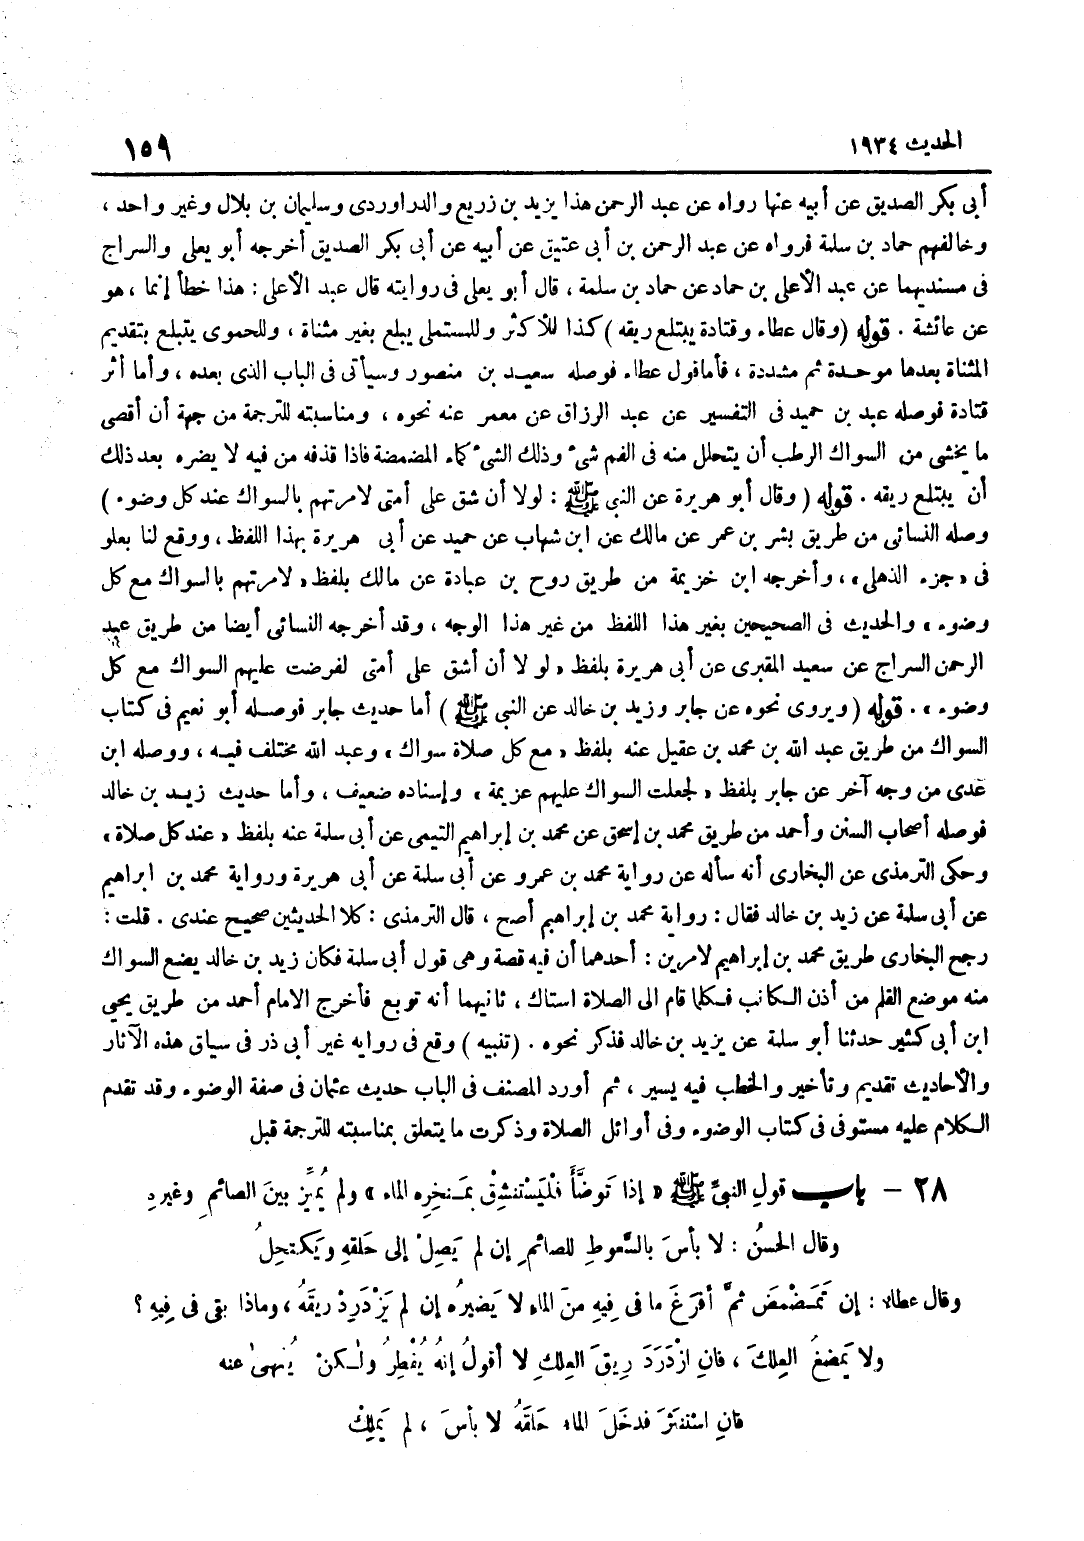 الحديث ١٩٣٤ ١٥٩
أبى بكر الصديق عن أبيه عنها رواه عن عبد الرحمن هذا يزيد بن زريع والدراوردى وسليمان بن بلال وغير واحد ،
وخالفهم حماد بن سلمة فرواه عن عبد الرحمن بن أبى عتيق عن أبيه عن أبى بكر الصديق أخرجه أبو يعلى والسراج
فى مسنديهما عن عبد الأعلى بن حماد عن حماد بن سلمة ، قال أبو يعلى فى روايته قال عبد الأعلى : هذا خطأ إنما ، هو
عن عائشة . قوله (وقال عطاء وقتادة يبتلع ريقه) كذا للأكثر وللمستملى يبلع بغير مثناة ، وللحموى يتبلع بتقديم
المثناة بعدها موحدة ثم مشددة ، فأما قول عطاء فوصله سعيد بن منصور وسيأتى فى الباب الذى بعده ، وأما أثر
قتادة فوصله عبد بن حميد فى التفسير عن عبد الرزاق عن معمر عنه نحوه ، ومناسبته للترجمة من جهة أن أقصى
ما يخشى من السواك الرطب أن يتحلل منه فى الفم شىء وذلك الشىء كماء المضمضة فاذا قذفه من فيه لا يضره بعد ذلك
أن يبتلع ريقه . قوله ( وقال أبو هريرة عن النبى ﷺ : لولا أن شق على أمتى لامرتهم بالسواك عند كل وضوء )
وصله النسائى من طريق بشر بن عمر عن مالك عن ابن شهاب عن حميد عن أبى هريرة بهذا اللفظ ، ووقع لنا بعلو
فى « جزء الذهلى » ، وأخرجه ابن خزيمة من طريق روح بن عبادة عن مالك بلفظ « لامرتهم بالسواك مع كل
وضوء » والحديث فى الصحيحين بغير هذا اللفظ من غير هذا الوجه ، وقد أخرجه النسائى أيضا من طريق عبد
الرحمن السراج عن سعيد المقبرى عن أبى هريرة بلفظ « لو لا أن أشق على أمتى لفرضت عليهم السواك مع كل
وضوء » . قوله ( ويروى نحوه عن جابر وزيد بن خالد عن النبى ﷺ ) أما حديث جابر فوصله أبو نعيم فى كتاب
السواك من طريق عبد الله بن محمد بن عقيل عنه بلفظ « مع كل صلاة سواك » وعبد الله مختلف فيه ، ووصله ابن
عدى من وجه آخر عن جابر بلفظ « لجعلت السواك عليهم عزيمة » وإسناده ضعيف ، وأما حديث زيد بن خالد
فوصله أصحاب السنن وأحمد من طريق محمد بن إسحق عن محمد بن إبراهيم التيمى عن أبى سلمة عنه بلفظ « عند كل صلاة »
وحكى الترمذى عن البخارى أنه سأله عن رواية محمد بن عمرو عن أبى سلمة عن أبى هريرة ورواية محمد بن ابراهيم
عن أبى سلمة عن زيد بن خالد فقال : رواية محمد بن إبراهيم أصح ، قال الترمذى : كلا الحديثين صحيح عندى . قلت :
رجع البخارى طريق محمد بن إبراهيم لامرين : أحدهما أن فيه قصة وهى قول أبى سلمة فكان زيد بن خالد يضع السواك
منه موضع القلم من أذن الكاتب فكلما قام الى الصلاة استاك ، ثانيهما أنه توبع فأخرج الامام أحمد من طريق يحيى
ابن أبى كثير حدثنا أبو سلمة عن يزيد بن خالد فذكر نحوه . (تنبيه ) وقع فى روايه غير أبى ذر فى سياق هذه الآثار
والأحاديث تقديم وتأخير والخطب فيه يسير ، ثم أورد المصنف فى الباب حديث عثمان فى صفة الوضوء وقد تقدم
الكلام عليه مستوفى فى كتاب الوضوء وفى أوائل الصلاة وذكرت ما يتعلق بمناسبته للترجمة قبل
٢٨ - باب قولِ النبىِّ ﷺ « إذا تَوضَّأَ فَلْيَسْتنشِقْ بمَنخِرِه الماء » ولم يُميِّز بينَ الصائمِ وغيرِهِ
وقال الحسنُ : لا بأسَ بالسَّعوطِ للصائمِ إن لم يَصِلْ إلى حَلقهِ ويَكتحِلُ
وقال عطاء : إن تَمَضْمَضَ ثمَّ أفرَغَ ما فى فِيهِ منَ الماءِ لا يَضيرُه إن لم يَزْدَرِدْ ريقَهُ ، وماذا بقى فى فِيهِ ؟
ولا يَمضَغُ العِلكَ ، فانِ ازْدَرَدَ رِيقَ العِلكِ لا أقولُ إنهُ يُفْطِرُ ولكنْ يُنهىٰ عنه
فانِ اسْتنثَرَ فدخَلَ الماء حَلقَهُ لا بأسَ ، لم يَملِكْ